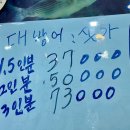 대방어 : 싯가
1.5인분 37000
2인분 50000
3인분 73000